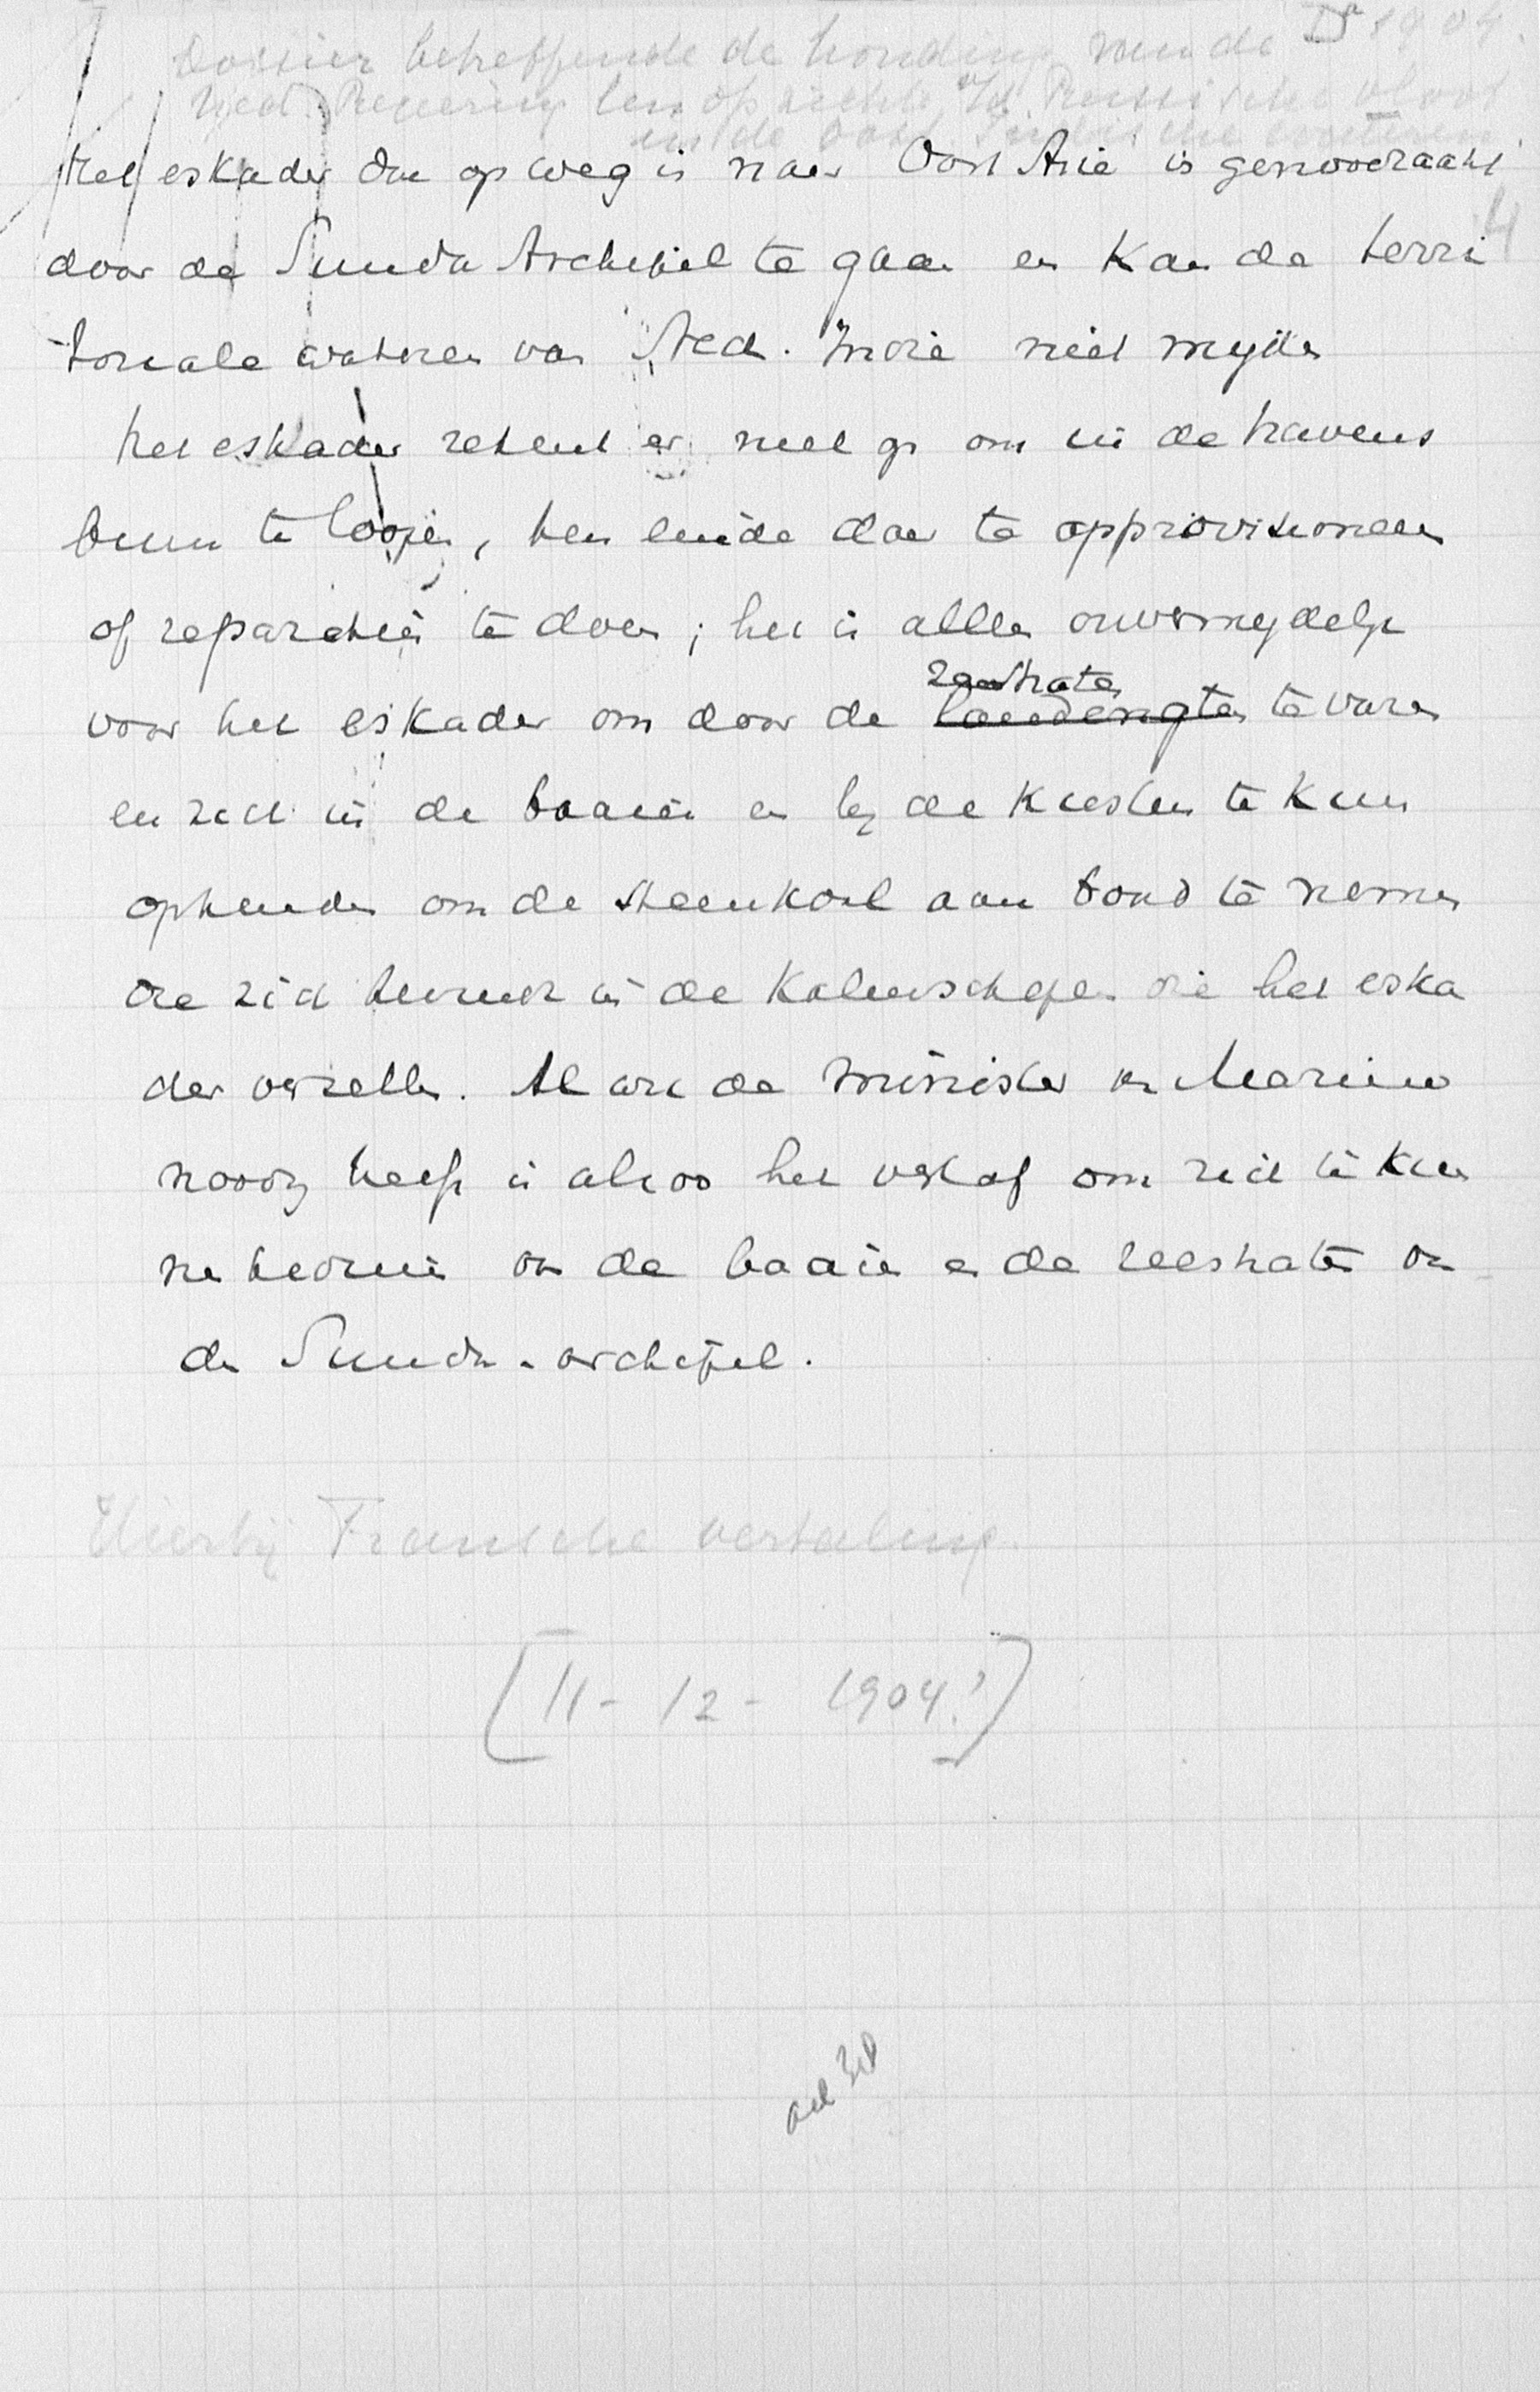 Dossier betreffende de houding van de IIa 1904.
Ned. Regeering ten opzichte v/d Russische vloot
in de Oost Indische wateren
4
Het eskader dat op weg is naar Oost Azië is genoodzaakt
door de Sunda Archipel te gaan en kan de terri
toriale wateren van Ned. Indië niet mijden
het eskader rekent er niet op om in de havens
binnen te loopen, ten einde daar te approvisioneeren
of reparatiën te doen; het is alleen onvermijdelijk
voor het eskader om door de zeestraten te varen
en zich in de baaien en bij de kusten te kunnen
ophouden om de steenkool aan boord te nemen
die zich bevindt in de kolenschepen die het eska
der verzellen. Al wat de minister van Marine
noodig heeft is alzoo het verlof om zich te kun
nen bedienen van de baaien en de zeestraten van
den Sunda-archipel.
Hierbij Fransche vertaling.
[11-12-1904?]